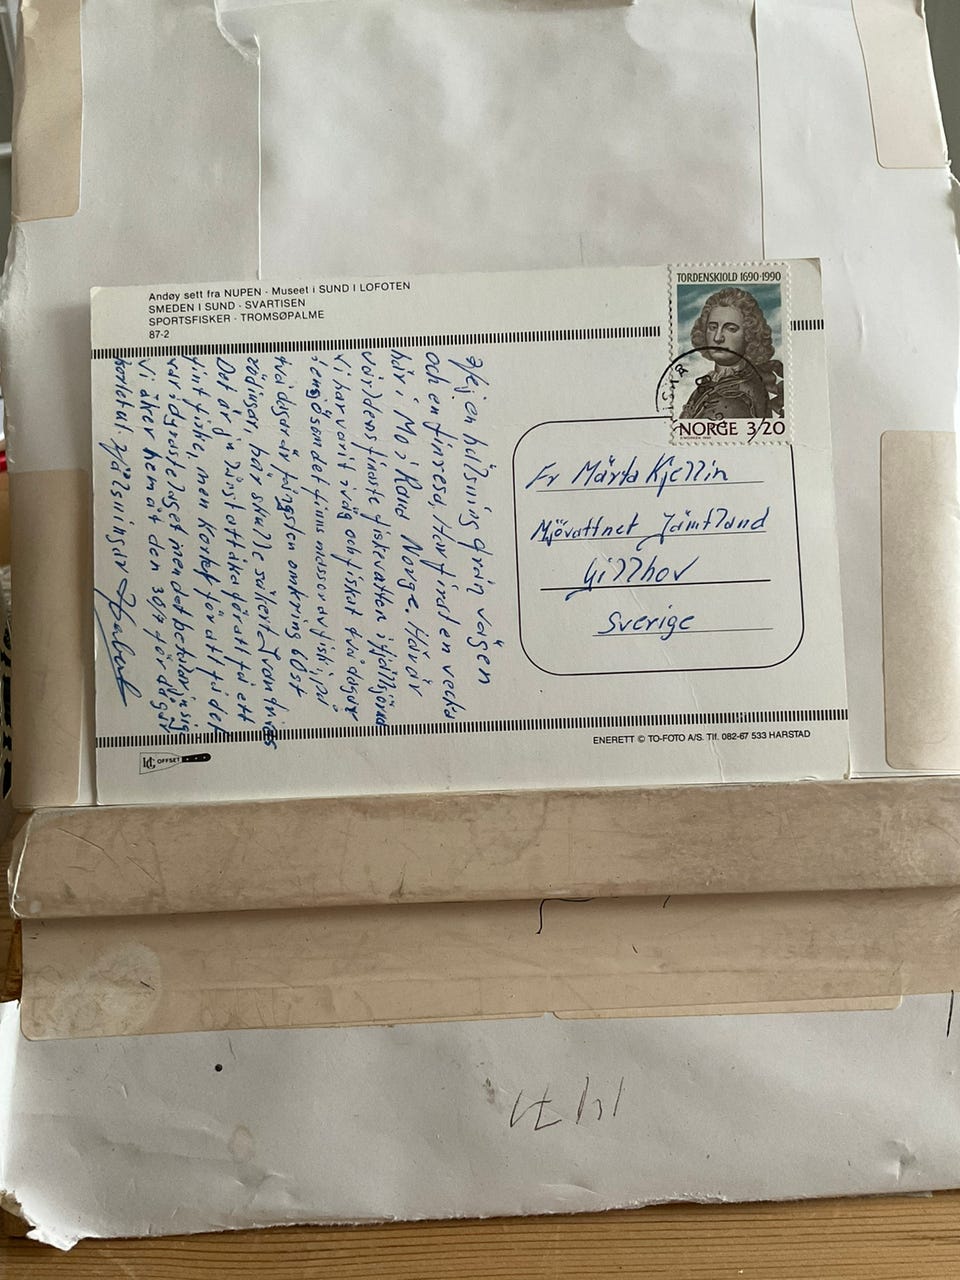 Andøy sett fra NUPEN · Museet i SUND I LOFOTEN
SMEDEN I SUND · SVARTISEN
SPORTSFISKER · TROMSØPALME
87-2
TORDENSKIOLD 1690-1990
NORGE 3,20
Hej en hälsning från vägen
och en fin resa. Har firad en vecka
här i Mo i Rana Norge. Här är
världens finaste fiskevatten i fjällsjöar
Vi har varit iväg och fiskat två dagar
i en sjö som det finns massor av fisk i, på
två dagar är fångsten omkring 60 st
rödingar, här skulle säkert
Det är ju långt att åka för att få ett
fint fiske, men kortet för att få det
var i dyraste laget men det betalar sig
Vi åker hemåt den 30/7 för dagar
kortet. Hälsningar
Fr Märta Kjellin
Mjövattnet Jämtland
Gillhov
Sverige
ENERETT © TO-FOTO A/S. Tlf. 082-67 533 HARSTAD
OFFSET